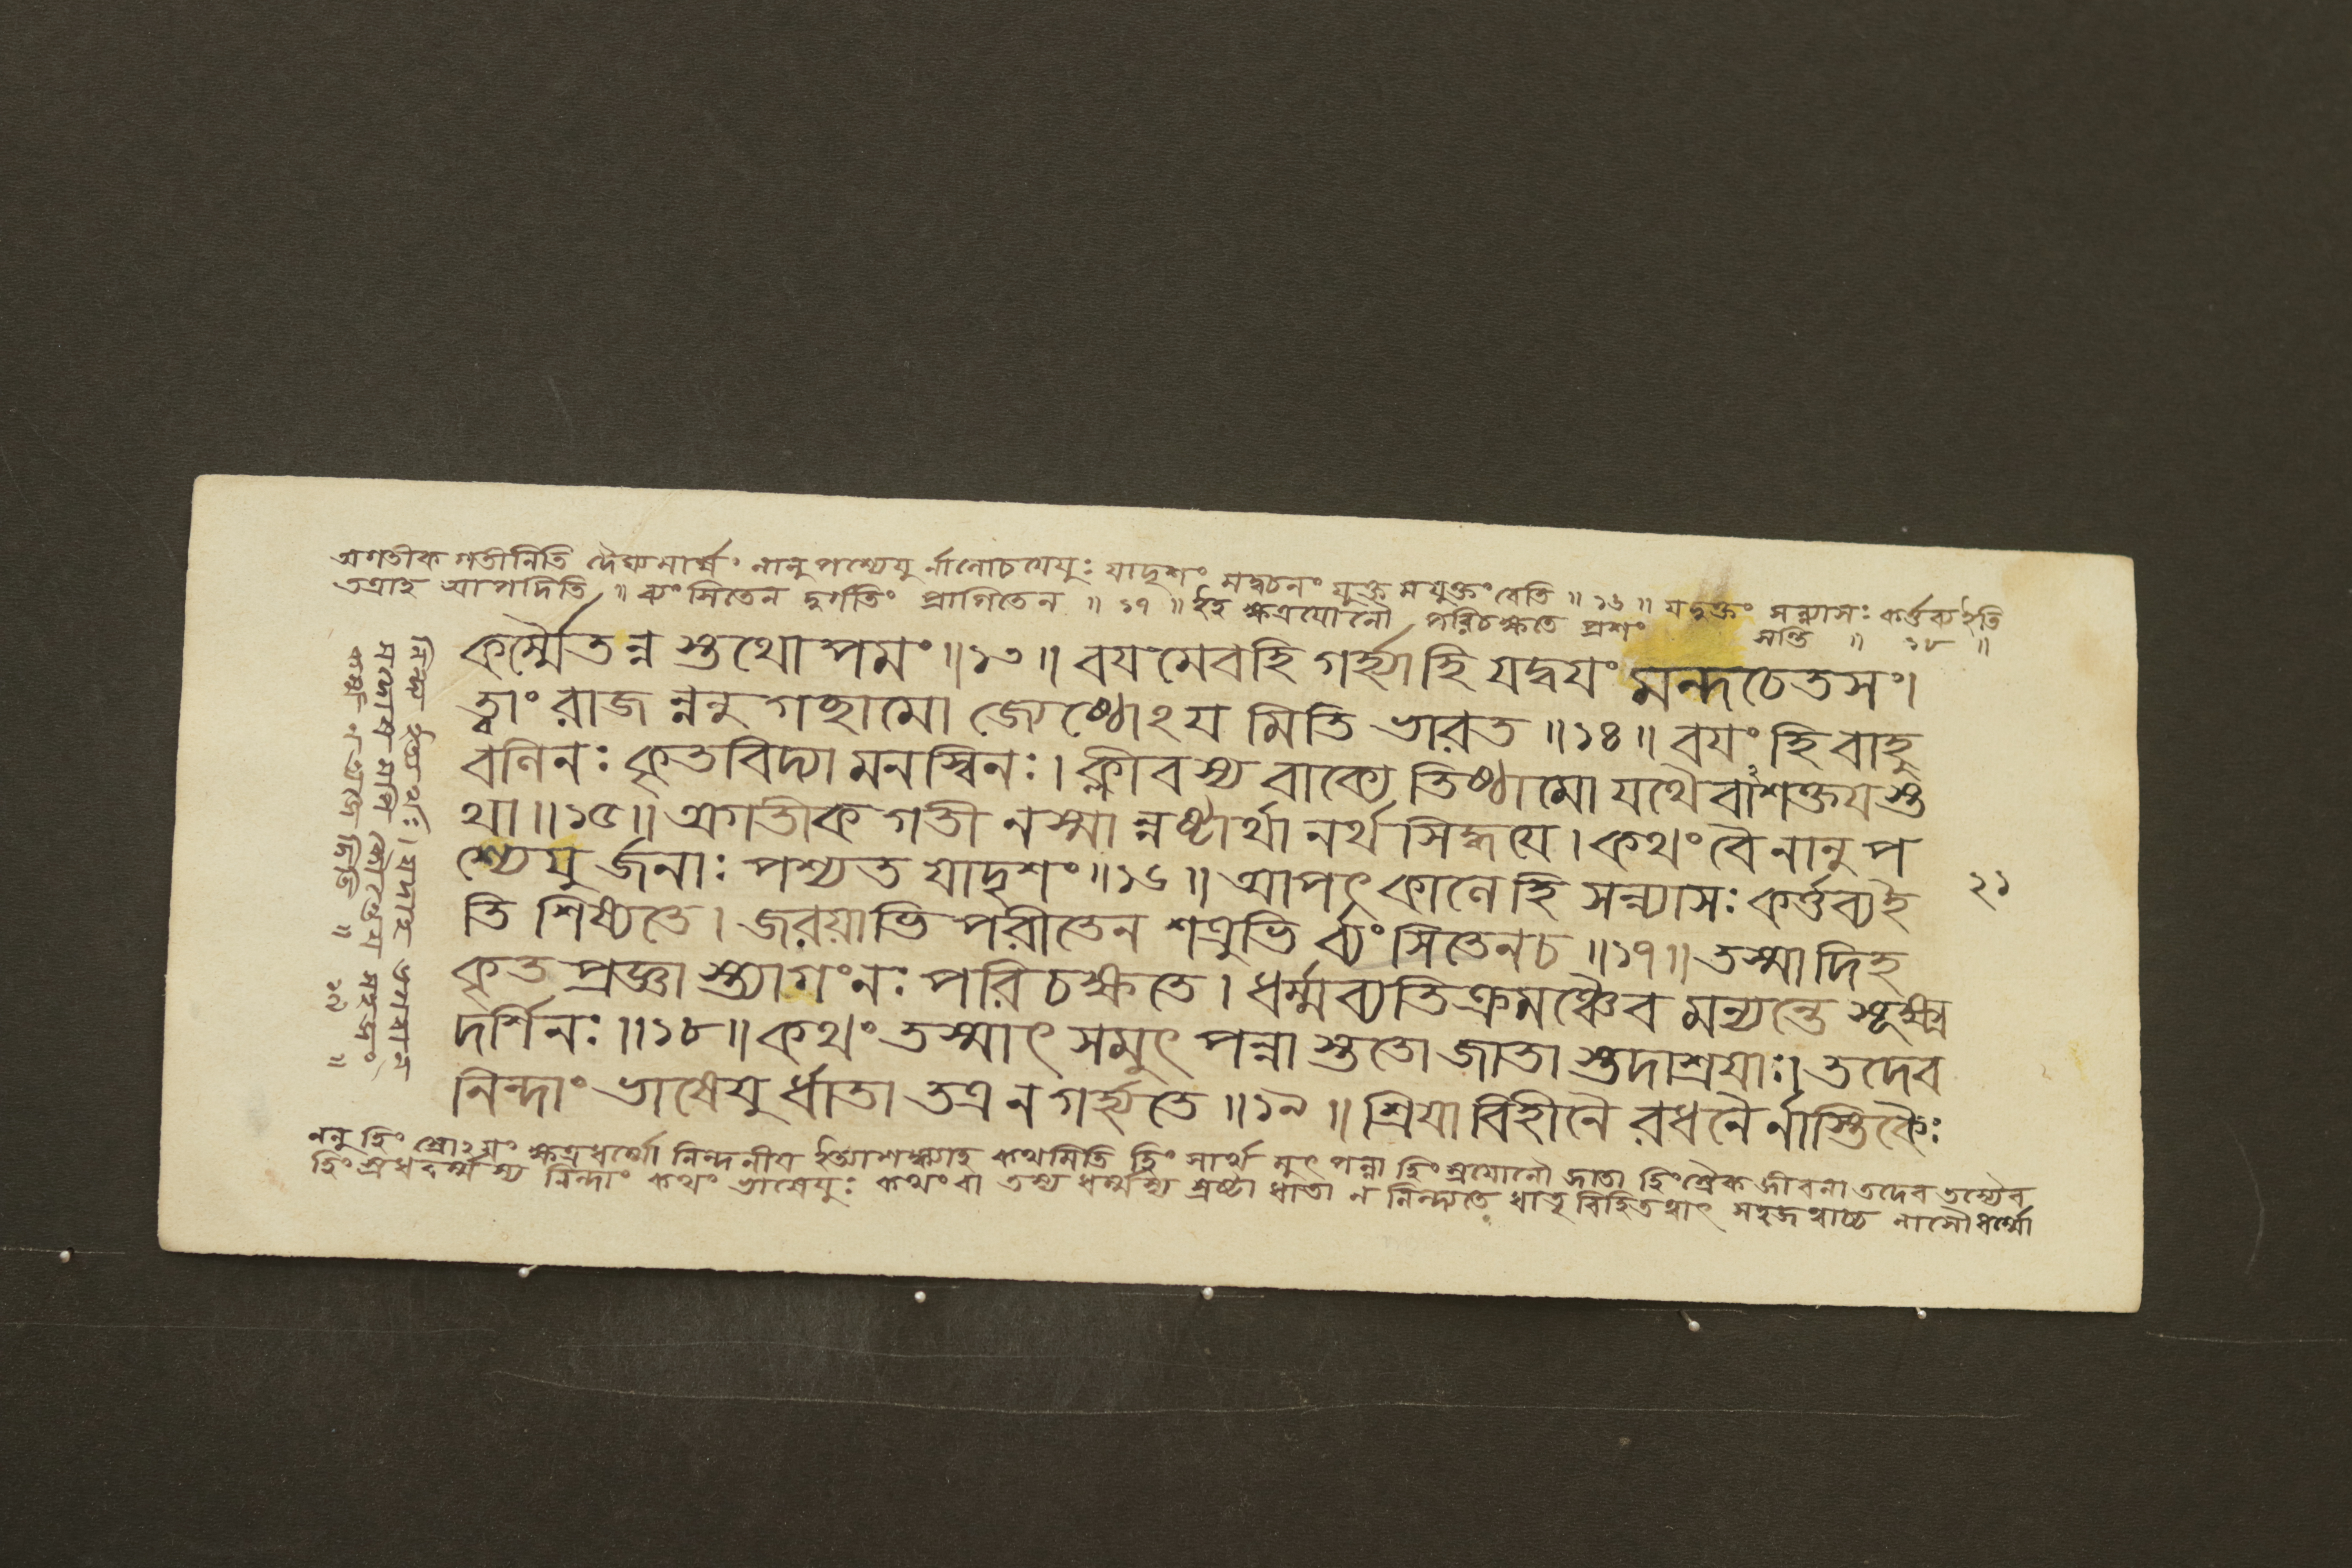 অগতীক গতীনিতি নানুপশ্যেযু র্নানোচযেযুঃ যাদৃশং মদ্বচনং যুক্তমযুক্তংবেতি ॥ ১৬ ॥ যদুক্তং সন্ন্যাসঃ কর্ত্তব্যইতি
তত্রাহ আপদিতি ॥ ব্যংসিতেন দুর্গতিং প্রাপিতেন ॥ ১৭ ॥ ইহ ক্ষত্রযোনৌ পরিচক্ষতে প্রশং
সন্তি ॥ ১৮ ॥
কর্ম্মৈতন্ন স্তুথোপমং ॥১৩॥ বযমেবহি গর্হ্যাহি যদ্বযং মন্দচেতসং।
ত্বাং রাজন্ননুগচ্ছামো জ্যেষ্ঠোঽযমিতি ভারত ॥১৪॥ বযং হি বাহু
বলিনঃ কৃতবিদ্যা মনস্বিনঃ। ক্লীবস্য বাক্যে তিষ্ঠামো যথৈবাশক্তযস্তু
থা ॥১৫॥ অগতীকগতীনস্মান্নষ্টার্থানর্থসিদ্ধযে। কথং বৈ নানুপ
শ্যেযুর্জনাঃ পশ্যত যাদৃশং ॥১৬॥ আপৎকালে হি সন্ন্যাসঃ কর্ত্তব্যই
২১
তি শিষ্যতে। জরয়াভিপরীতেন শত্রুভির্ব্যংসিতেনচ ॥১৭॥ তস্মাদিহ
কৃতপ্রজ্ঞাস্ত্যাগংনঃ পরিচক্ষতে। ধর্ম্মব্যতিক্রমঞ্চৈব মন্যন্তে শূক্ষ্ম
দর্শিনঃ ॥১৮॥ কথং তস্মাৎ সমুৎপন্নাস্তুতো জাতাস্তুদাশ্রযাঃ। তদেব
নিন্দাং ভাষেযুর্ধাতা তত্র ন গর্হ্যতে ॥১৯॥ শ্রিযা বিহীনৈরধনৈর্নাস্তিকৈঃ
ননু ক্ষত্রধর্ম্মো নিন্দনীয ইত্যাশঙ্ক্যাহ কথমিতি মুৎপন্না জাতা তদেব তস্যৈব
নিন্দাং কথং ভাষেযুঃ কথংবা তস্য ধর্ম্মস্য স্রষ্টা ধাতা ন নিন্দ্যতে ধাতৃবিহিতত্বাৎ সহজত্বাচ্চ নাসৌধর্ম্মো